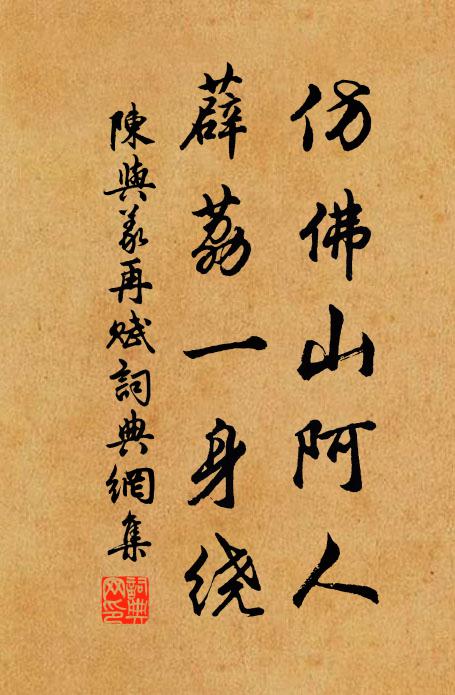 仿佛山阿人
薜荔一身绕
陳與義再賦詞典網集
詞典
网印